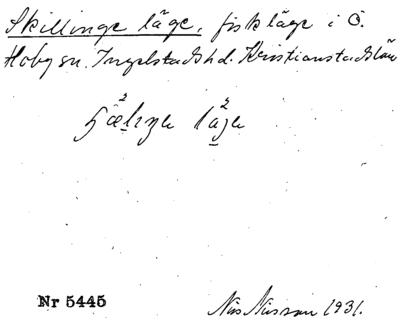 Skillinge läge, fiskläge i Ö.
Hoby sn. Ingelstads hd. Kristianstads län
läge
Nr 5445
Nils Nilsson 1931.